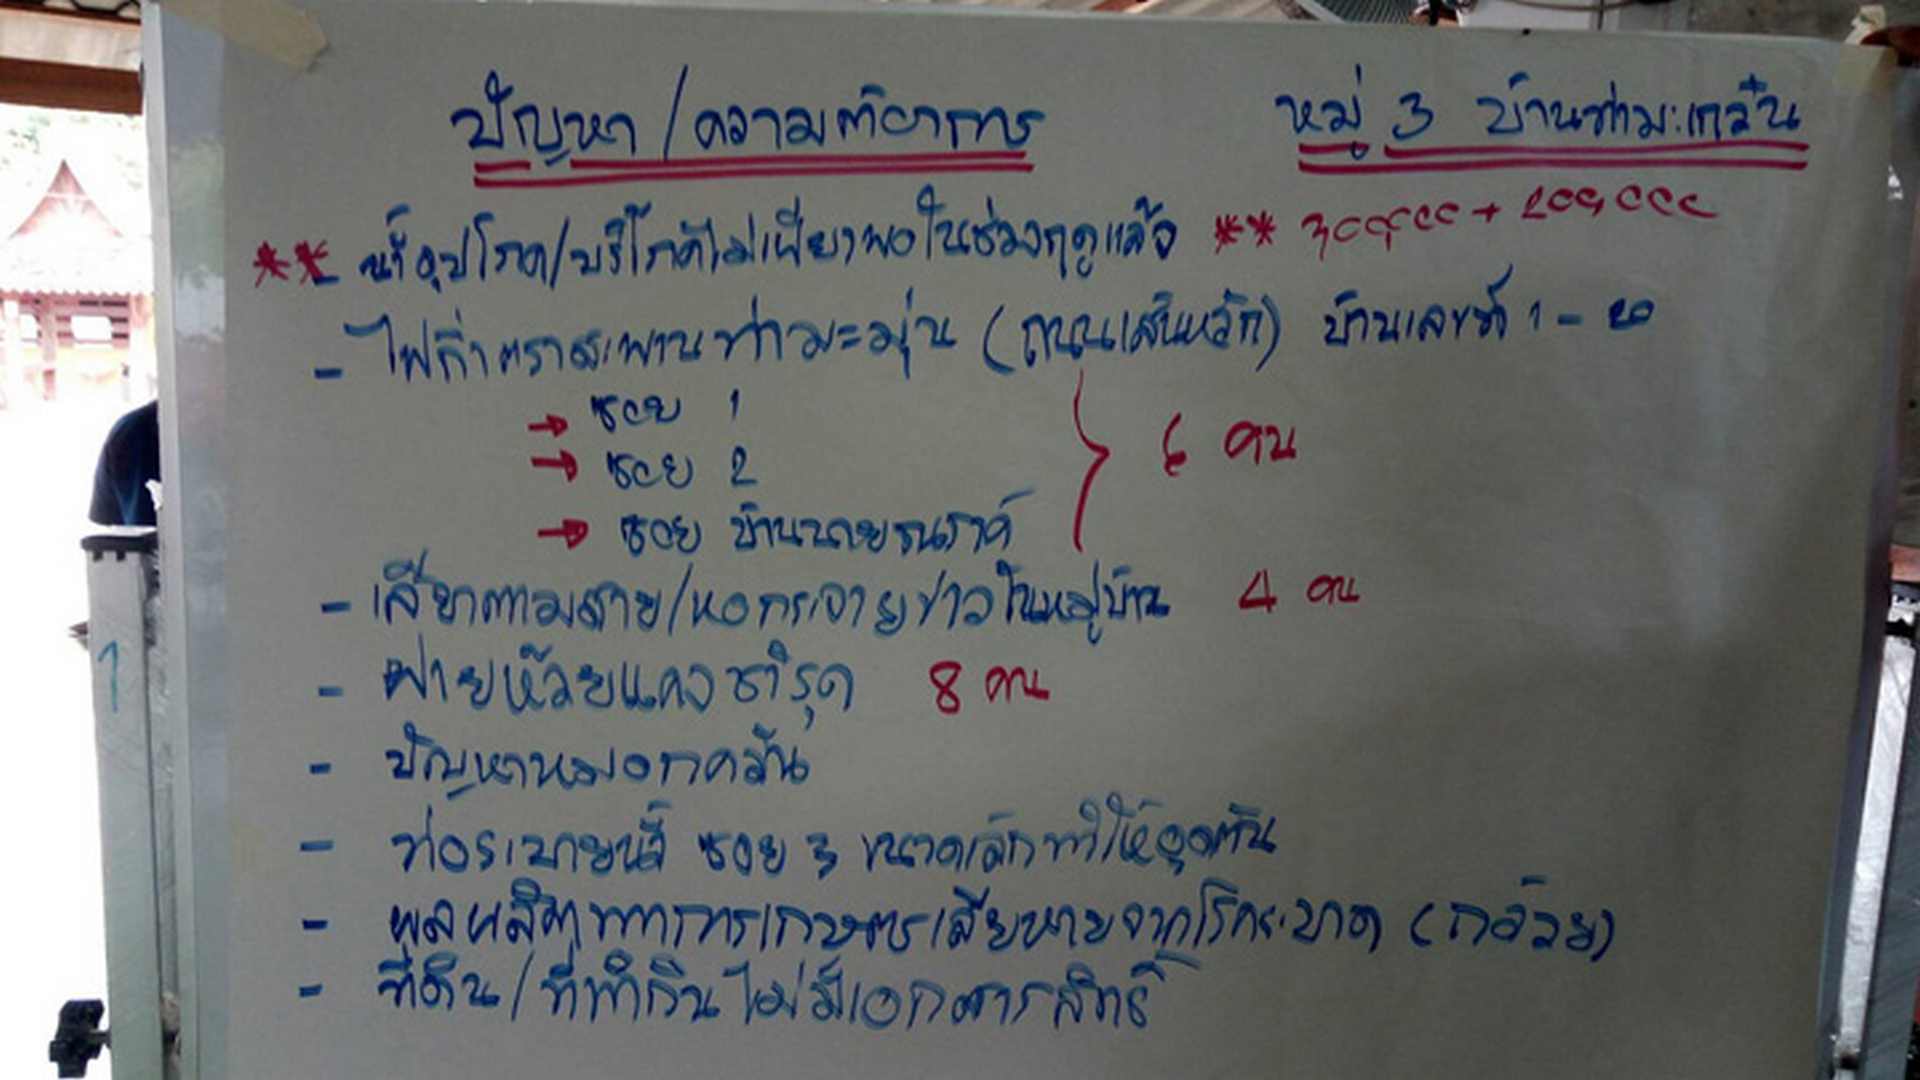 ปัญหา/ความต้องการ หมู่ 3 บ้านท่ามะเกลือน
** - น้ำอุปโภค/บริโภคไม่เพียงพอในช่วงฤดูแล้ง **
- ไฟกิ่งตรงสะพานท่ามะมุ่น (ถนนเส้นหลัก) บ้านเลขที่ 1 -
→ ซอย 1
→ ซอย 2 } 6 คน
→ ซอย บ้านนาย
- เสียงตามสาย/หอกระจายข่าวในหมู่บ้าน 4 คน
- ฝายห้วยแดงชำรุด 8 คน
- ปัญหาหมอกควัน
- ท่อระบายน้ำ ซอย 3 ขนาดเล็กทำให้อุดตัน
- ผลผลิตทางการเกษตรเสียหายจากโรคระบาด (กล้วย)
- ที่ดิน/ที่ทำกินไม่มีเอกสารสิทธิ์